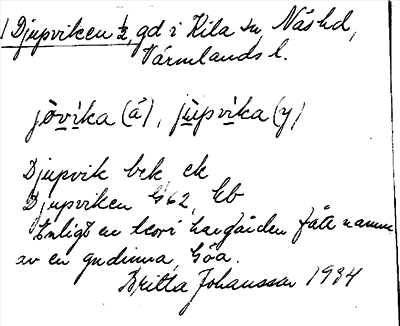 1 Djupviken ½, gd i Kila sn, Näs hd,
Värmlands l.
jòvika (å), jùpvìka (y)
Djupvik bek, ek
Djupviken G62, Eb
Enligt en teori har gården fått namn
av en gudinna, Göa.
Britta Johansson 1934